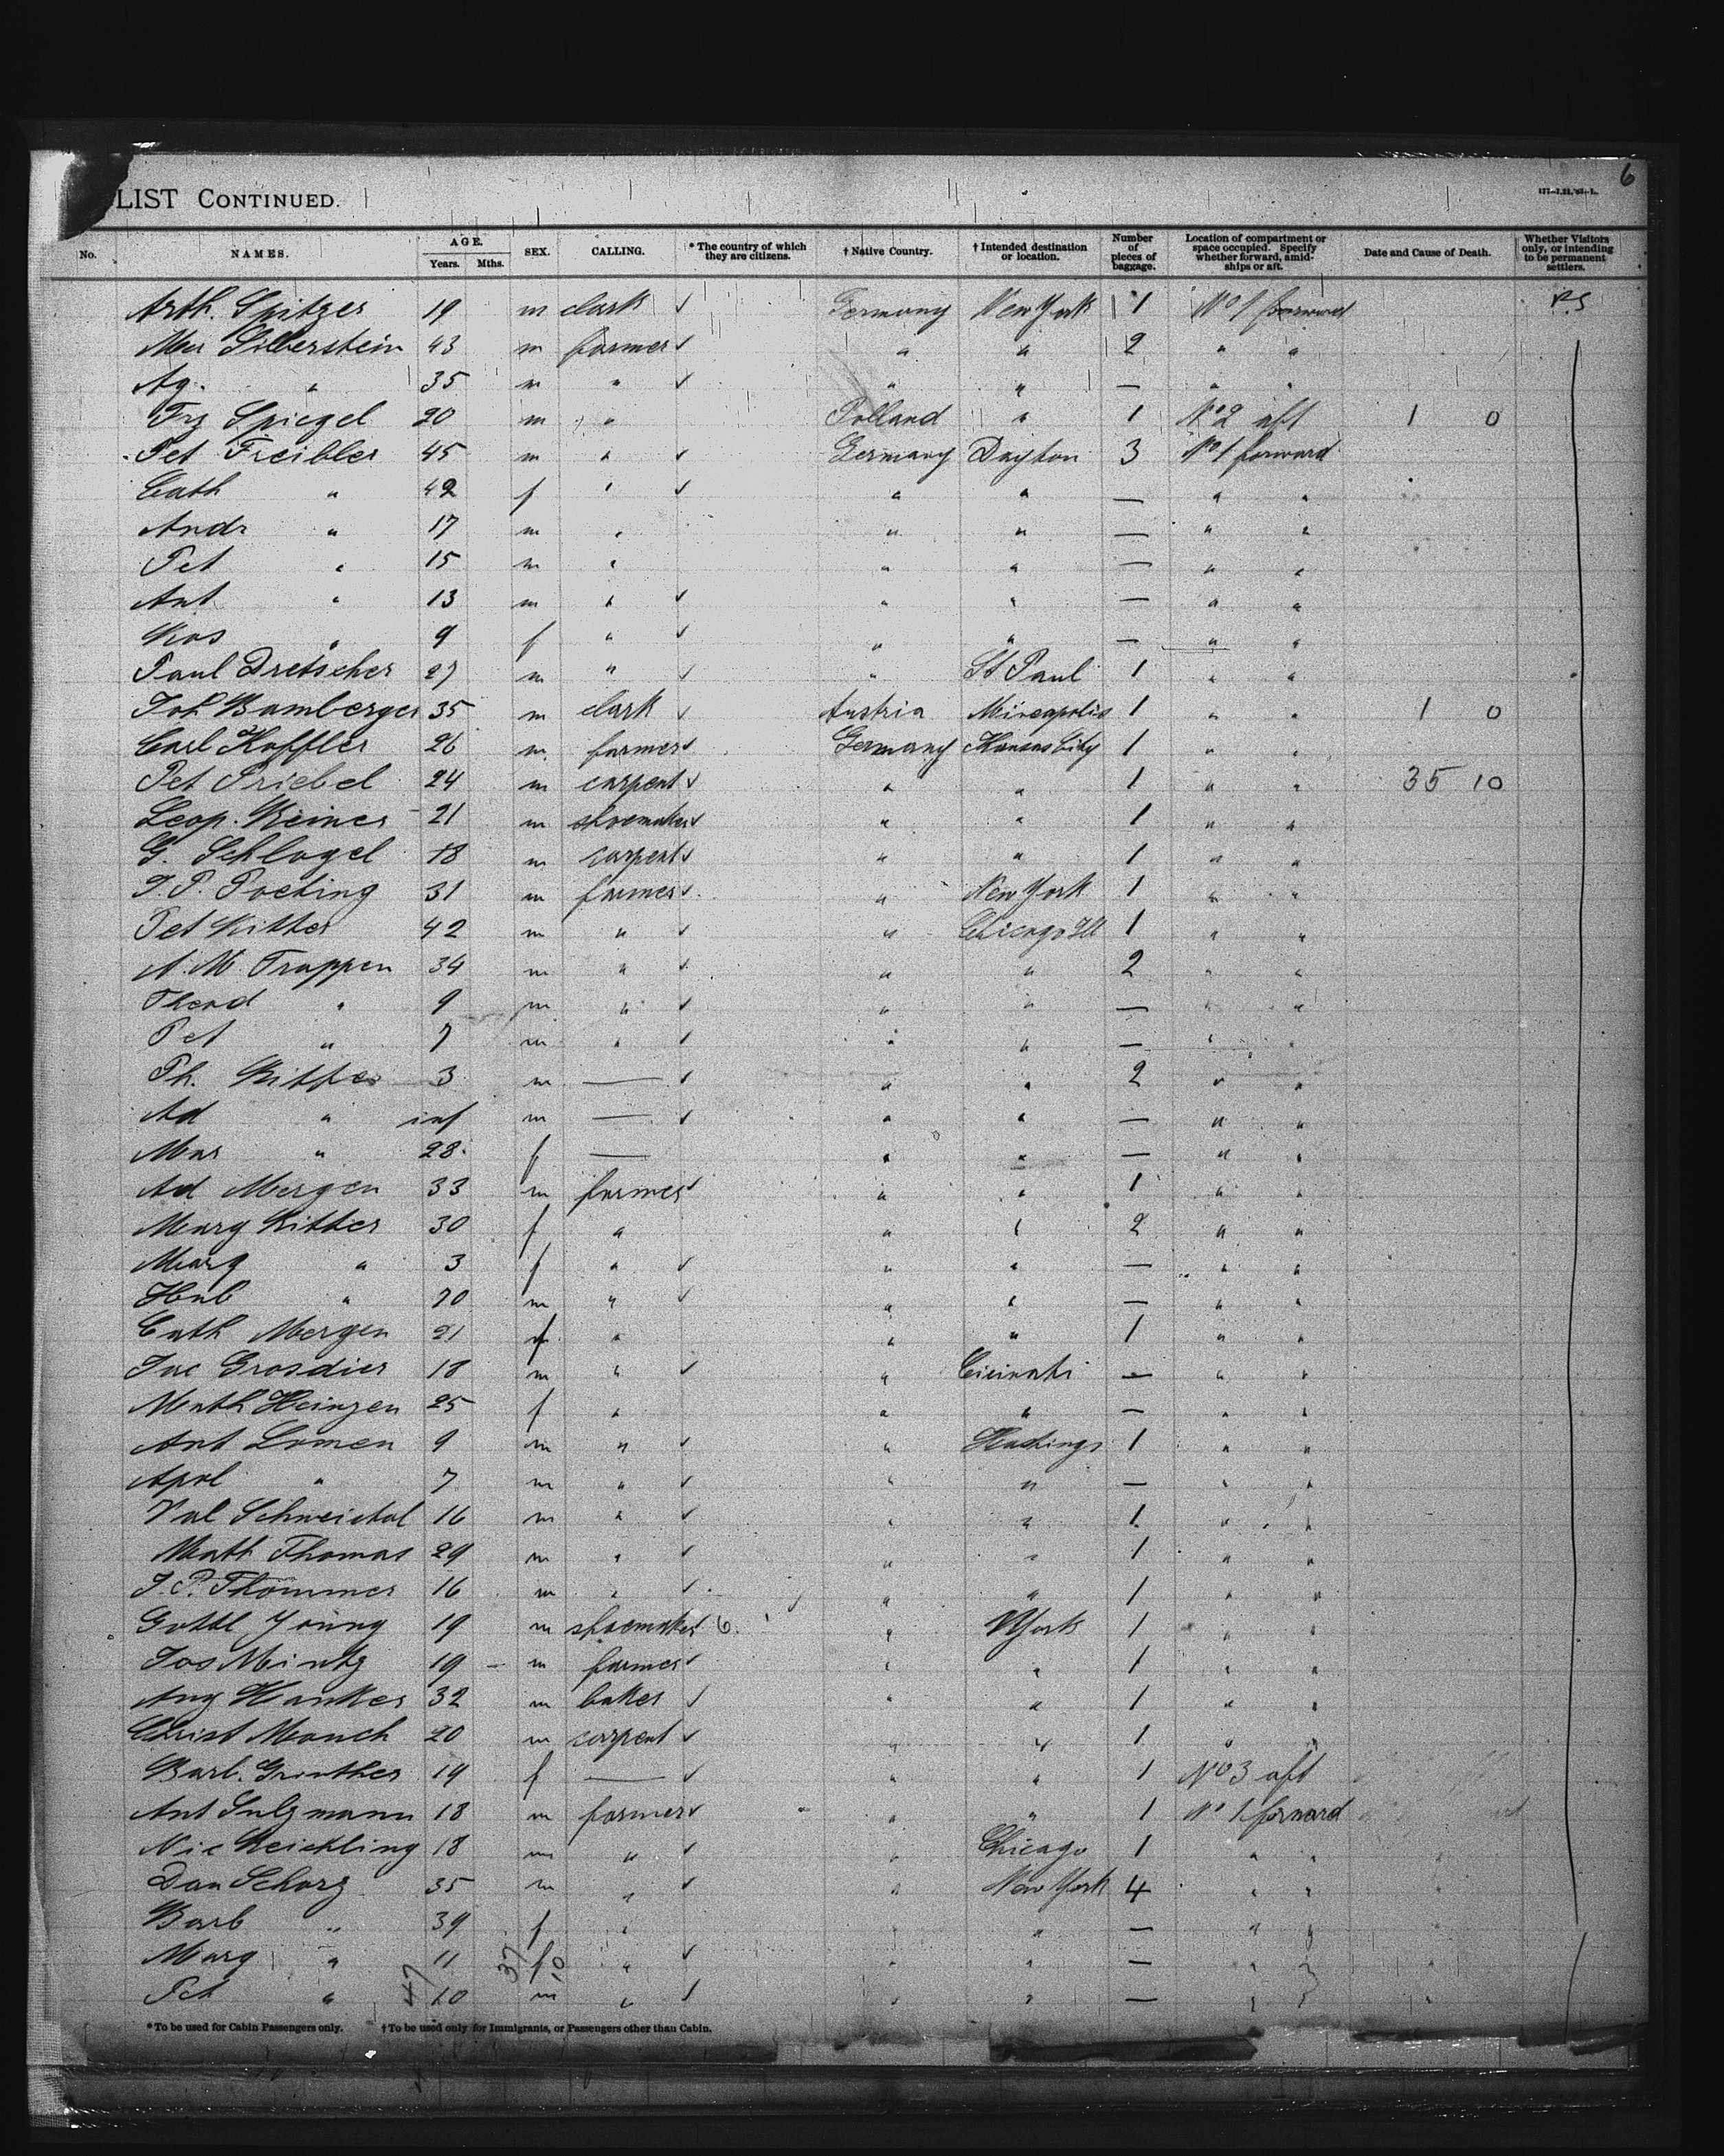 6
LIST CONTINUED.
No. NAMES. AGE. Years. Mths. SEX. CALLING. * The country of which they are citizens. † Native Country. † Intended destination or location. Number of pieces of baggage. Location of compartment or space occupied. Specify whether forward, amidships or aft. Date and Cause of Death. Whether Visitors only, or intending to be permanent settlers.
Arth. Spitzer 19 m clark ✓ Germany New York 1 No 1 forward P.S
Silberstein 43 m farmer ✓ " " 2 " "
Ag. " 35 m " ✓ " " — " "
Frz Spiegel 20 m " Polland " 1 No 2 aft 1 0
Pet Freibler 45 m " ✓ Germany Dayton 3 No 1 forward
Cath " 42 f " ✓ " " — " "
Andr " 17 m " " " — " "
Pet " 15 m " " " — " "
Ant " 13 m " ✓ " " — " "
Ros " 9 f " ✓ " " — " "
Paul Dretscher 27 m " ✓ " St Paul 1 " "
Joh Bamberger 35 m clark ✓ Austria Mineapolis 1 " " 1 0
Carl Hoffler 26 m farmer ✓ Germany Kansas City 1 " "
Pet Priebel 24 m carpent ✓ " " 1 " " 35 10
Leop. Reiner 21 m shoemaker ✓ " " 1 " "
G. Schlogel 18 m carpent ✓ " " 1 " "
J. P. Poeting 31 m farmer ✓ " New York 1 " "
Pet Ritter 42 m " ✓ " Chicago Ill 1 " "
A. M. Trappen 34 m " ✓ " " 2 " "
Theod " 9 m " ✓ " " — " "
Pet " 7 m " ✓ " " — " "
Ph. Ritter 3 m — ✓ " " 2 " "
Ad " inf m — ✓ " " — " "
Mar " 28 f — " " — " "
Ad Mergen 33 m farmer ✓ " " 1 " "
Marg Ritter 30 f " " " 2 " "
Marg " 3 f " ✓ " " — " "
Hub " 20 m " ✓ " " — " "
Cath Mergen 21 f " " " 1 " "
Jac Grosdier 18 m " ✓ " Cicinati — " "
Math Heinzen 25 f " " " — " "
Ant Lomen 9 m " ✓ " Hastings 1 " "
Apol " 7 m " ✓ " " — " "
Val Schweictal 16 m " ✓ " " 1 " "
Math Thomas 29 m " ✓ " " 1 " "
J. P. Thömmes 16 m " ✓ " " 1 " "
Gottl Young 19 m shoemaker ✓ 6. " NYork 1 " "
Jos Mintz 19 — m farmer ✓ " " 1 " "
Aug Hanker 32 m baker ✓ " " 1 " "
Christ Monch 20 m carpent ✓ " " 1 "
Barb. Grinther 19 f — ✓ " " 1 No 3 aft
Ant Sulzmann 18 m farmer ✓ " " 1 No 1 forward
Nic Reichling 18 m " ✓ " Chicago 1 " "
Dan Scharz 35 m " ✓ " New York 4 " "
Barb " 39 f " " " — " "
Marg " 11 f " ✓ " " — " "
Pet " 10 m " ✓ " " — " "
47 37 10
* To be used for Cabin Passengers only. † To be used only for Immigrants, or Passengers other than Cabin.